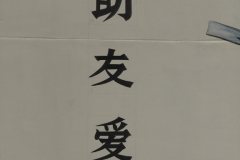 助友爱